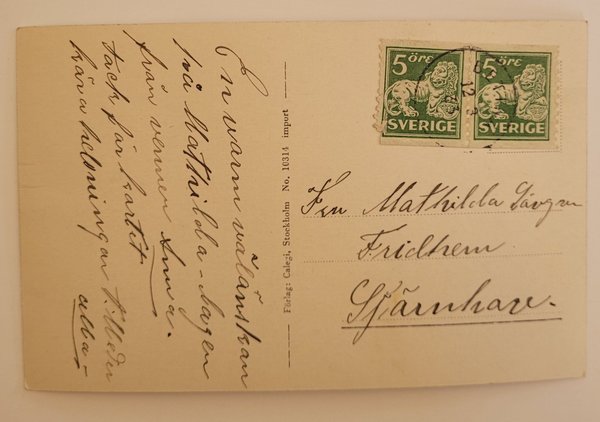 En warm wälånskan
på Mathilda-dagen
från vännen Anna.
Tack för kortet
kära helsningar t. Eder
alla -
Förlag: Calegi, Stockholm No. 10314 import
5 ÖRE
SVERIGE
5 ÖRE
SVERIGE
12
Fru Mathilda Lövgren
Fridhem
Stjärnhov.